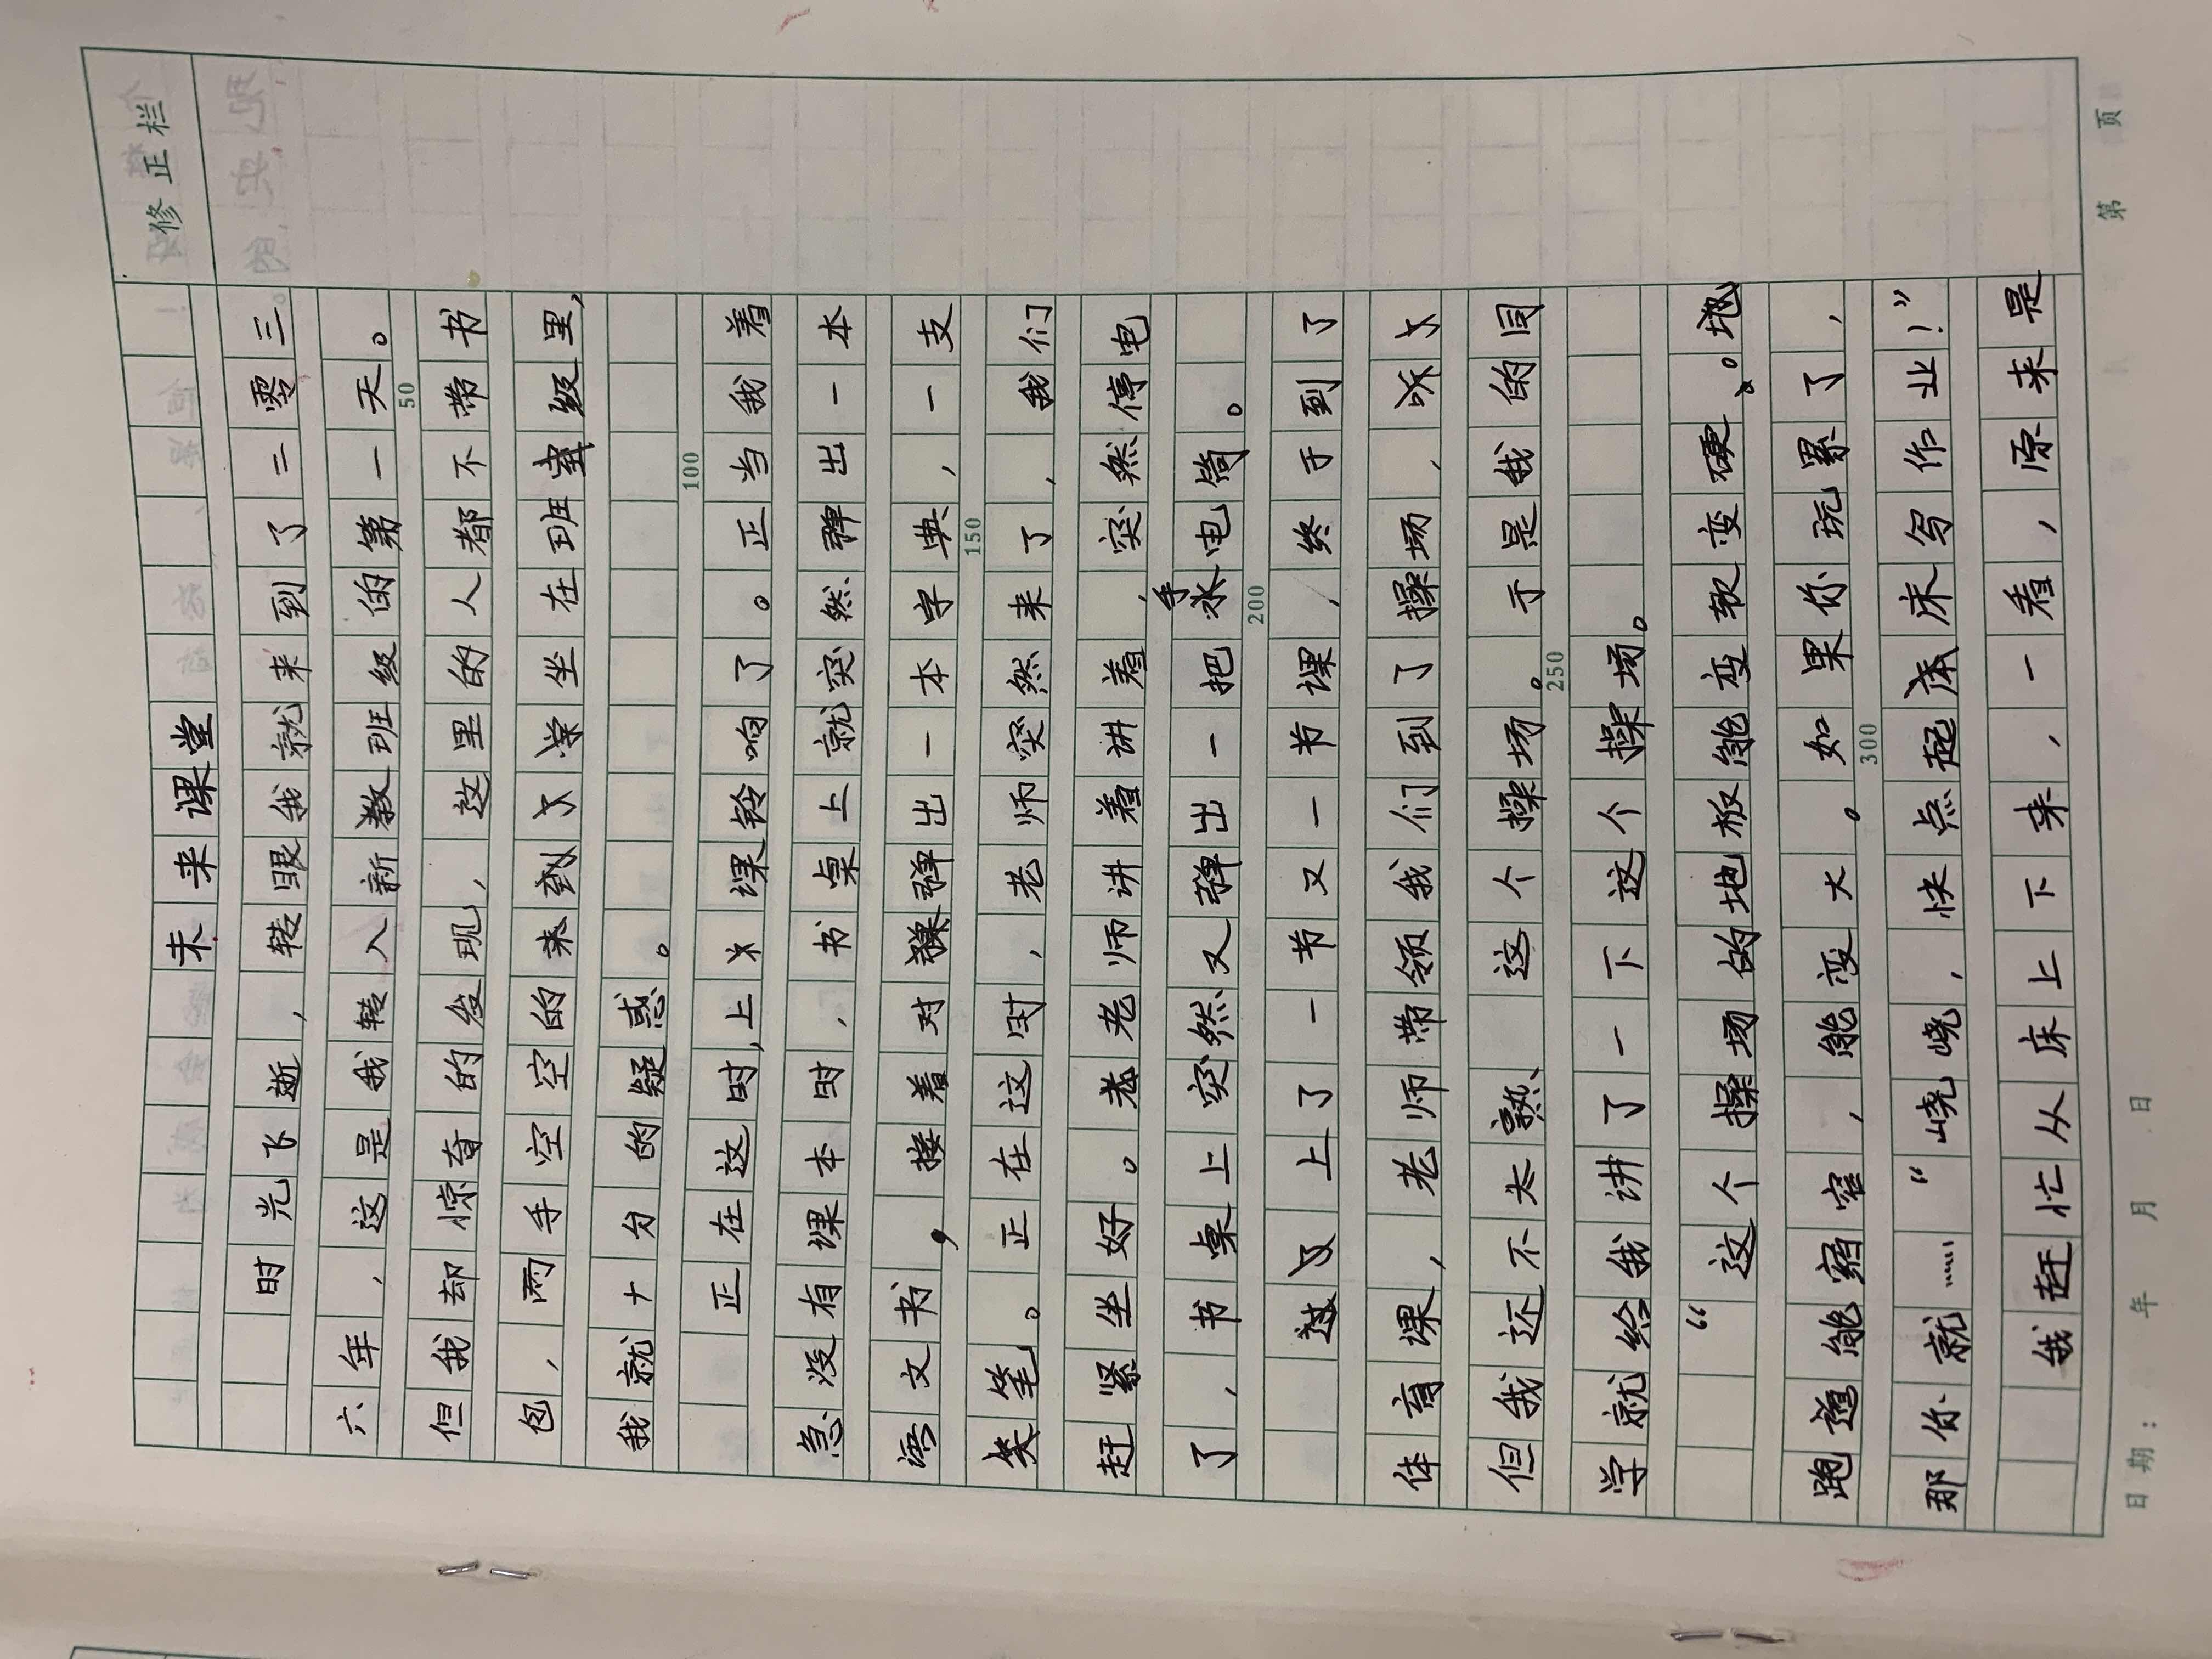 修正栏
未来课堂
时光飞逝，转眼我就来到了二零三
六年，这是我转入新班级的第一天。
但我却惊奇的发现，这里的人都不带书
包，两手空空的来到坐在班级里，
我就十分的疑惑。
正在这时，上课铃响了。正当我着
急没有课本时，书桌上就突然弹出一本
语文书，接着对弹出一本字典，一支
笔。正在这时，老师突然来了，我们
赶紧坐好。老师讲着讲着，突然停电
了，书桌上突然又弹出一把手电筒。
上了一节又一节课，终于到了
体育课，老师带领我们到了操场，
但我还不太熟、这个操场。于是我的同
学就给我讲了一下这个操场。
“这个操场的地板能变软变硬。
跑道能窄，能变大。如果你玩累了，
那你就……“峣峣，快点起床写作业！”
我赶忙从床上下来，一看，原来是
50
100
150
200
250
300
日期： 年 月 日
第 页